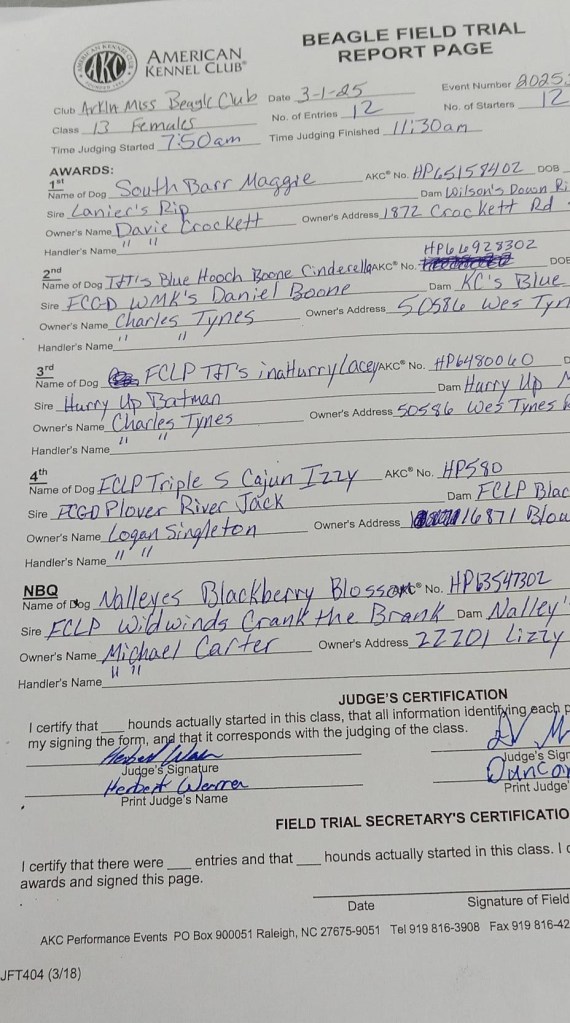 AMERICAN KENNEL CLUB
AKC
AMERICAN
KENNEL CLUB®
BEAGLE FIELD TRIAL
REPORT PAGE
Club ArkLa Miss Beagle Club Date 3-1-25 Event Number 2025
Class 13 Females No. of Entries 12 No. of Starters 12
Time Judging Started 7:50am Time Judging Finished 11:30am
AWARDS:
1st
Name of Dog South Barr Maggie AKC® No. HP65158402 DOB
Sire Lanier's Rip Dam Wilson's Dawn Ri
Owner's Name Davie Crockett Owner's Address 1872 Crockett Rd
Handler's Name " "
2nd HP66928302
Name of Dog TJT's Blue Hooch Boone Cinderella AKC® No. DOB
Sire FCGD WMK's Daniel Boone Dam KC's Blue
Owner's Name Charles Tynes Owner's Address 50586 Wes Tyn
Handler's Name " "
3rd
Name of Dog FCLP TJT's inaHurry Lacey AKC® No. HP6480060 D
Sire Hurry Up Batman Dam Hurry Up
Owner's Name Charles Tynes Owner's Address 50586 Wes Tynes
Handler's Name " "
4th
Name of Dog FCLP Triple S Cajun Izzy AKC® No. HP580
Sire FCGD Plover River Jack Dam FCLP Blac
Owner's Name Logan Singleton Owner's Address 16871 Blou
Handler's Name " "
NBQ
Name of Dog Nalleyes Blackberry Blossom AKC® No. HP63547302
Sire FCLP Wildwinds Crank the Brank Dam Nalley'
Owner's Name Michael Carter Owner's Address 22201 Lizzy
Handler's Name " "
JUDGE'S CERTIFICATION
I certify that ___ hounds actually started in this class, that all information identifying each p
my signing the form, and that it corresponds with the judging of the class.
Judge's Signature Judge's Sign
Herbert Warren Duncan
Print Judge's Name Print Judge'
FIELD TRIAL SECRETARY'S CERTIFICATIO
I certify that there were ___ entries and that ___ hounds actually started in this class. I
awards and signed this page.
Date Signature of Field
AKC Performance Events PO Box 900051 Raleigh, NC 27675-9051 Tel 919 816-3908 Fax 919 816-42
JFT404 (3/18)